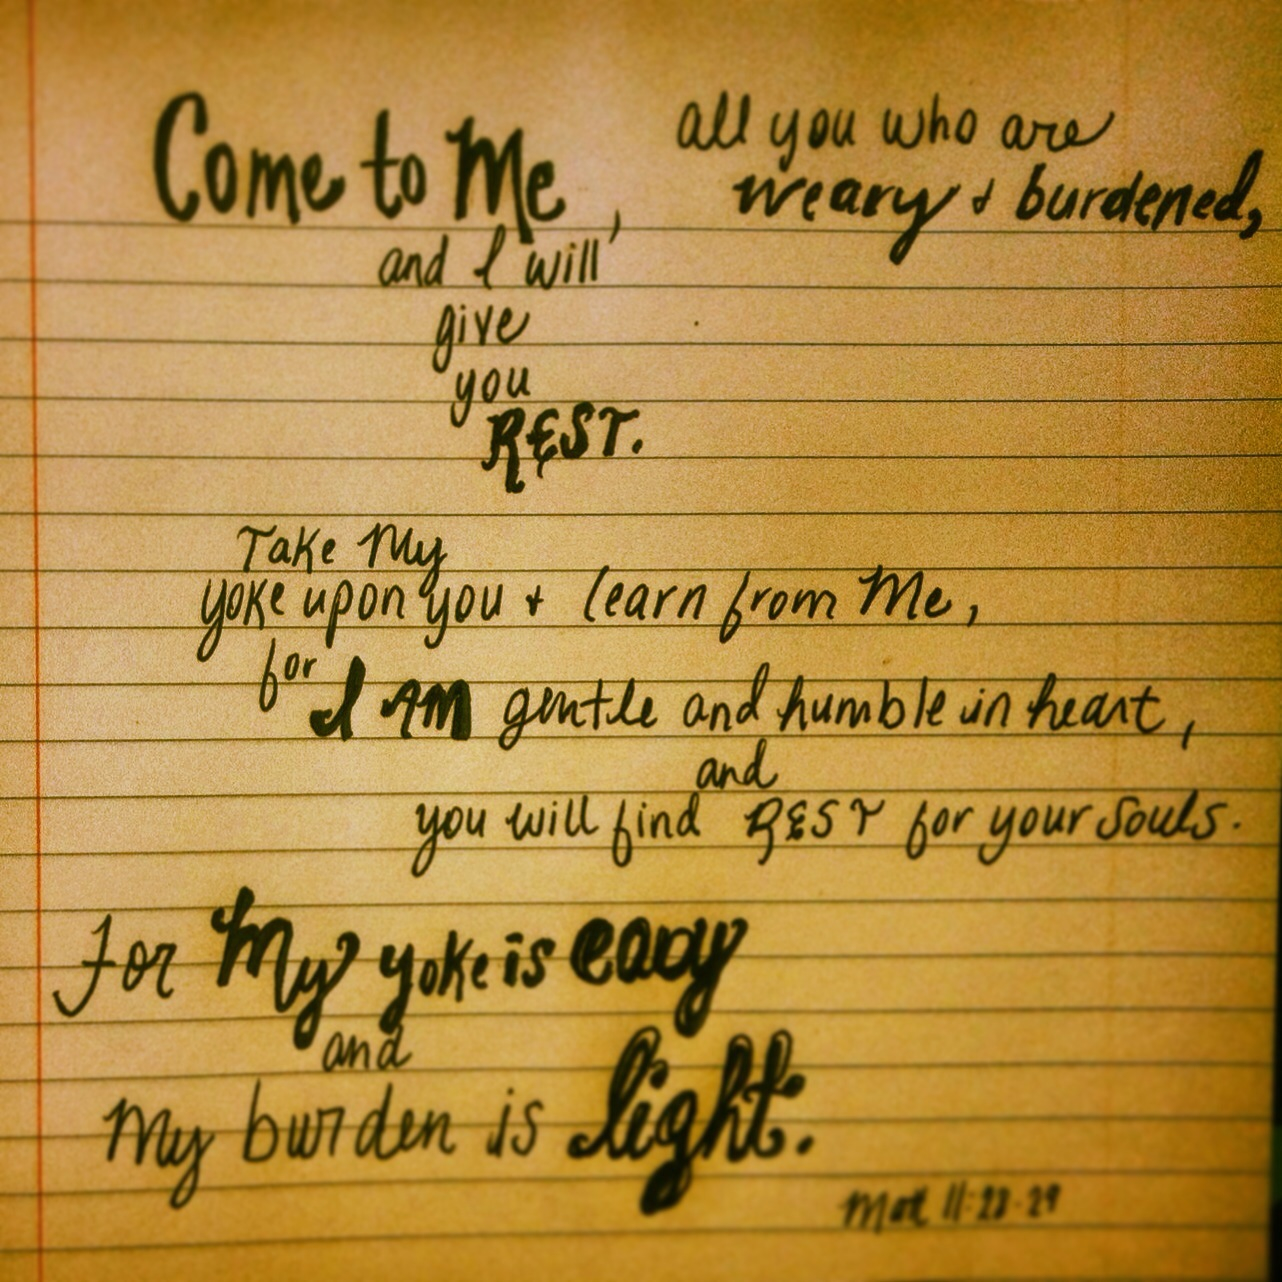 Come to Me, all you who are
weary + burdened,
and I will
give
you
REST.
Take My
yoke upon you + learn from Me,
for
I AM gentle and humble in heart,
and
you will find REST for your souls.
For My yoke is easy
and
My burden is light.
Mat 11:28-29